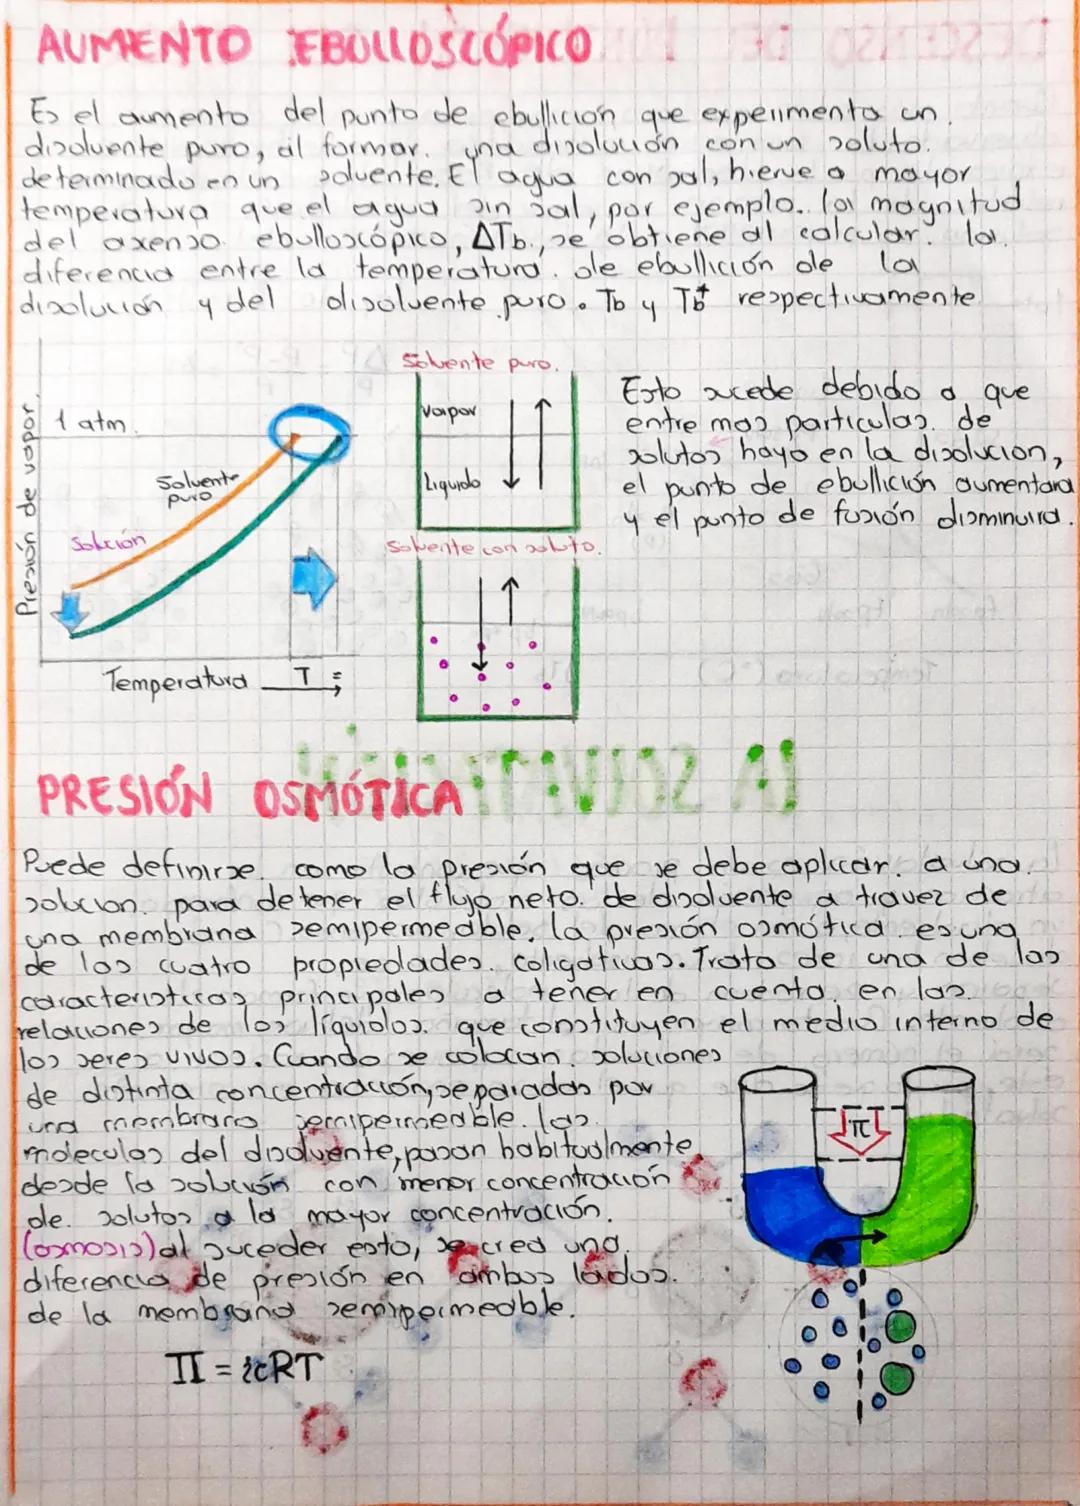 AUMENTO EBULLOSCÓPICO
Es el aumento del punto de ebullición que experimenta un
disolvente puro, al formar. una disolución con un soluto.
determinado en un solvente. El agua con sal, hierve a mayor
temperatura que el agua sin sal, por ejemplo. la magnitud
del axenso ebulloscópico, ΔTb., se obtiene al calcular. la.
diferencia entre la temperatura. de ebullición de la
disolución y del disolvente puro. Tb y Tb* respectivamente
Presión de vapor.
1 atm.
Solvente
puro
Solución
Temperatura T =
Solvente puro.
Vapor
Liquido
Solvente con soluto.
Esto sucede debido a que
entre mas particulas. de
solutos haya en la disolucion,
el punto de ebullición aumentara
y el punto de fusión disminuira.
PRESIÓN OSMÓTICA
Puede definirse. como la presión que se debe aplicar. a una.
solucion. para detener el flujo neto. de disolvente a travez de
una membrana semipermeable. la presión osmótica es una
de las cuatro propiedades. coligativas. Trata de una de las
caracteristicas principales a tener en cuenta. en las.
relaciones de los líquidos. que constituyen el medio interno de
los seres vivos. Cuando se colocan. soluciones
de distinta concentración, separadas por
una membrana semipermeable. las.
moleculas del disolvente, pasan habitualmente.
desde la solución con menor concentración
de. solutos a la mayor concentración.
(osmosis) al suceder esto, se crea una.
diferencia de presión en ambos lados.
de la membrana semipermeable.
π
Π = icRT